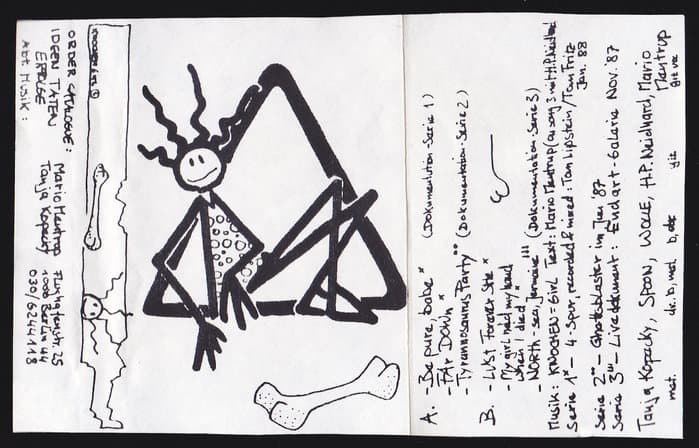 KNOCHEN=GIRL ①
ORDER CATALOGUE:
IDEEN TATEN
ERFOLGE
Abt. Musik:
Mario Mentrup
Tanja Kopecky
Flughafenstr. 25
1000 Berlin 44
030/6244118
A. - Be pure, babe* (Dokumentation-Serie 1)
- FAr DOWN*
- Tyrannosaurus Party** (Dokumentation-Serie 2)
B. - LUST Forever She*
- My girl held my hand
when I died*
- NORTH-sea, Germanie''' (Dokumentation-Serie 3)
Musik: KNOCHEN=Girl Text: Mario Mentrup
Serie 1* - 4-Spur, recorded & mixed: Tom Lipstein/Tom Fritz
Jan. 88
Serie 2** - Ghettoblaster im Juni '87
Serie 3''' - Livedokument: Endart-Galerie Nov. '87
Tanja Kopecky, SPOON, WOLLE, H.P. Neidhard, Mario
Mentrup